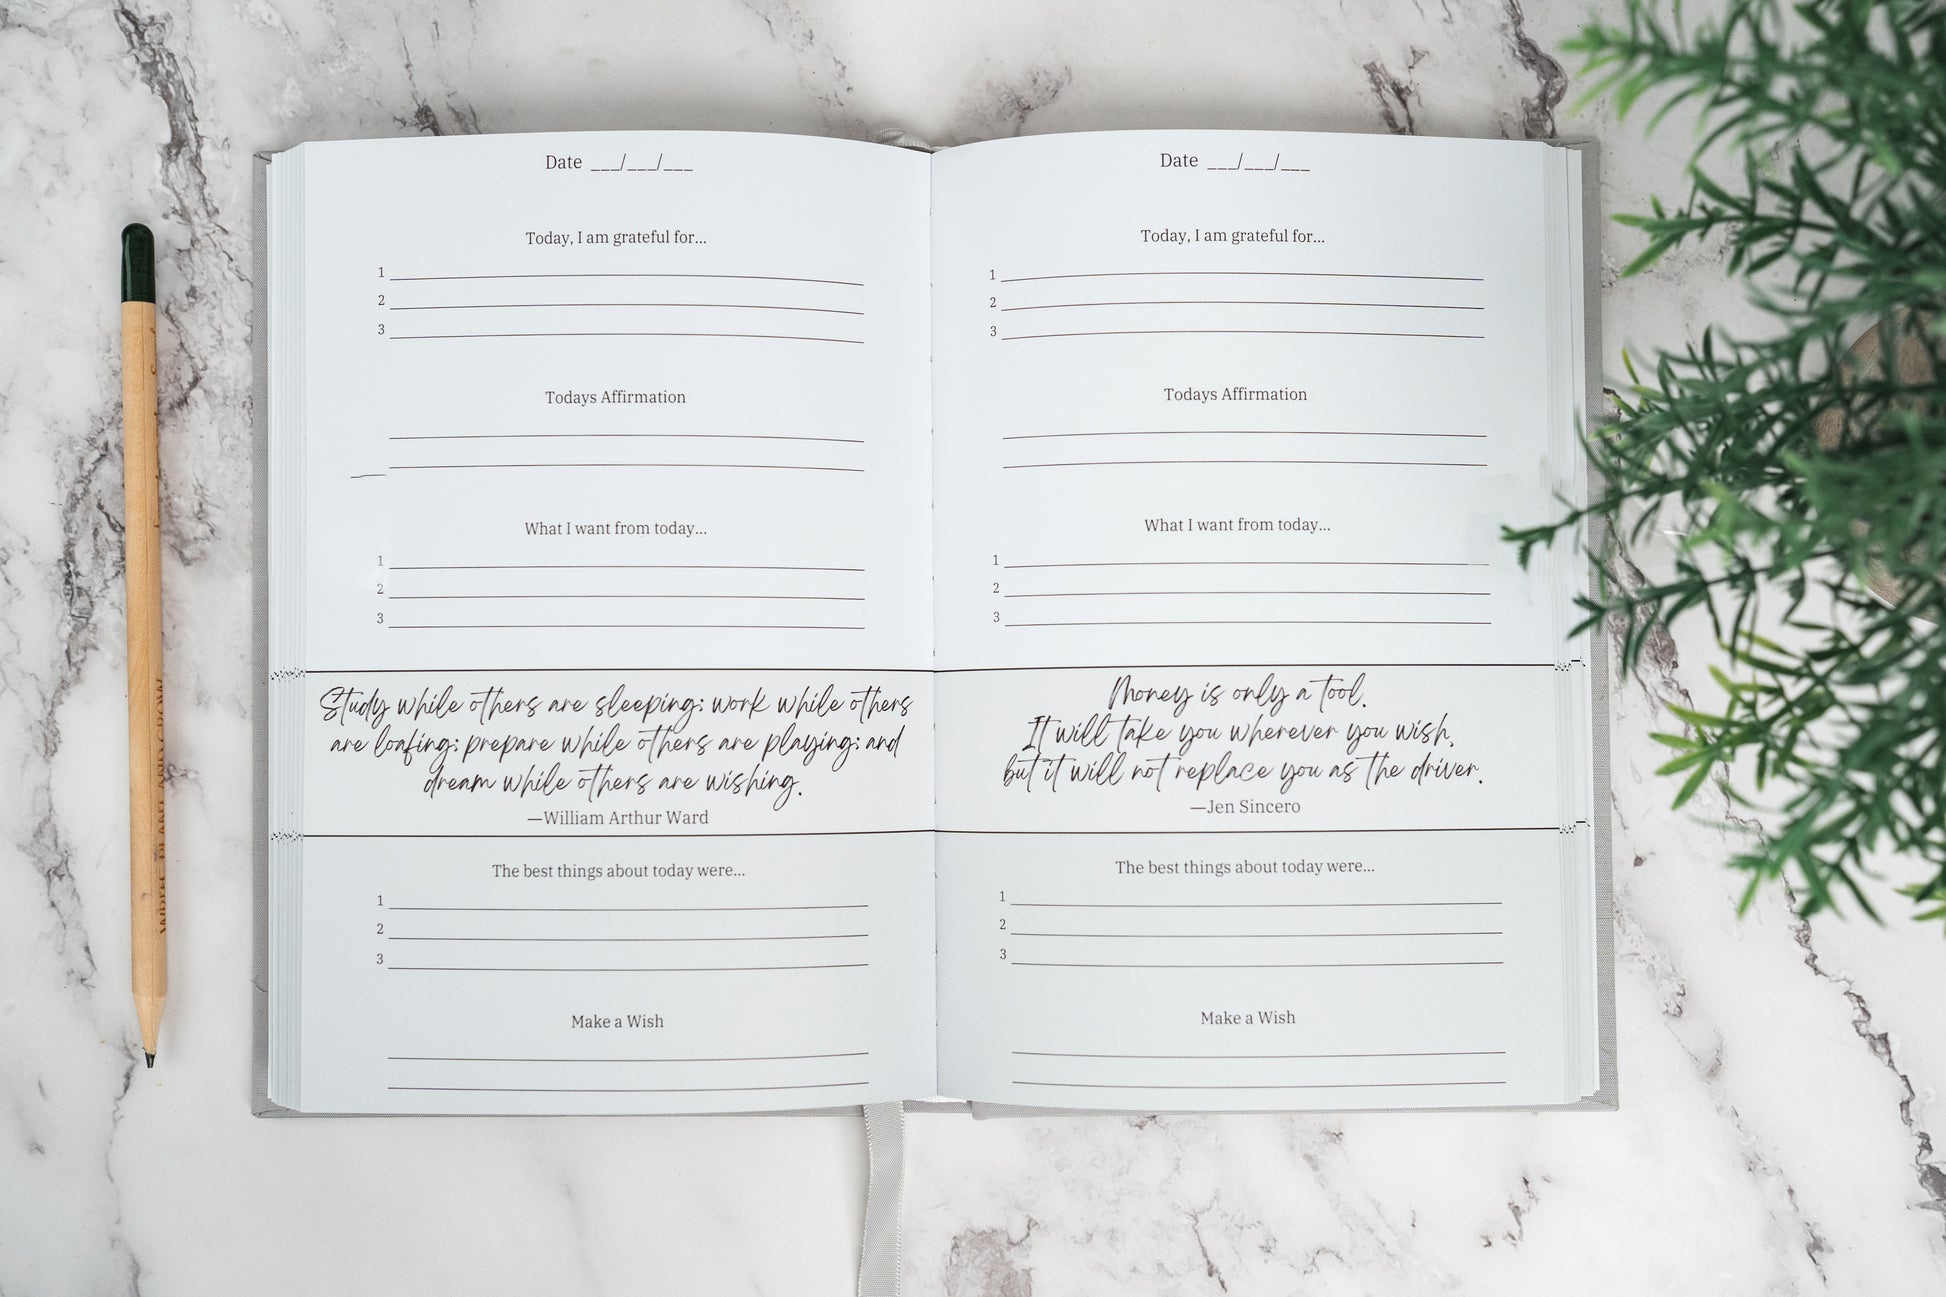 Date ___/___/___
Today, I am grateful for...
1
2
3
Todays Affirmation
What I want from today...
1
2
3
Study while others are sleeping; work while others
are loafing; prepare while others are playing; and
dream while others are wishing.
—William Arthur Ward
The best things about today were...
1
2
3
Make a Wish
Date ___/___/___
Today, I am grateful for...
1
2
3
Todays Affirmation
What I want from today...
1
2
3
Money is only a tool.
It will take you wherever you wish,
but it will not replace you as the driver.
—Jen Sincero
The best things about today were...
1
2
3
Make a Wish